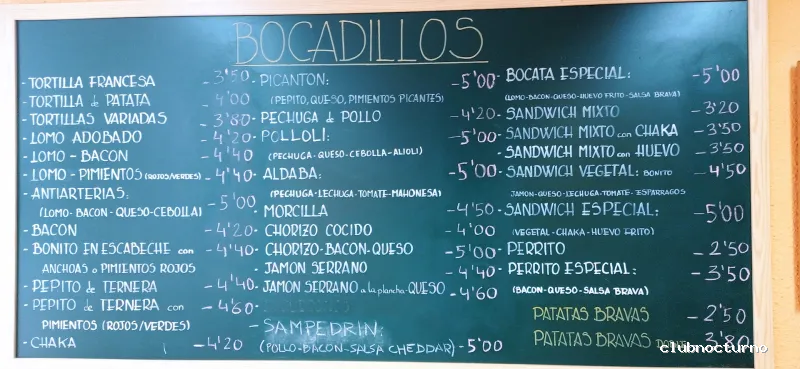 BOCADILLOS
- TORTILLA FRANCESA - 3'50
- TORTILLA de PATATA - 4'00
- TORTILLAS VARIADAS - 3'80
- LOMO ADOBADO - 4'20
- LOMO - BACON - 4'40
- LOMO - PIMIENTOS (ROJOS/VERDES) - 4'40
- ANTIARTERIAS: - 5'00
(LOMO-BACON-QUESO-CEBOLLA)
- BACON - 4'20
- BONITO EN ESCABECHE con - 4'40
ANCHOAS o PIMIENTOS ROJOS
- PEPITO de TERNERA - 4'40
- PEPITO de TERNERA con - 4'60
PIMIENTOS (ROJOS/VERDES)
- CHAKA - 4'20
- PICANTON: - 5'00
(PEPITO, QUESO, PIMIENTOS PICANTES)
- PECHUGA de POLLO - 4'20
- POLLOLI: - 5'00
(PECHUGA-QUESO-CEBOLLA-ALIOLI)
- ALDABA: - 5'00
(PECHUGA-LECHUGA-TOMATE-MAHONESA)
- MORCILLA - 4'50
- CHORIZO COCIDO - 4'00
- CHORIZO-BACON-QUESO - 5'00
- JAMON SERRANO - 4'40
- JAMON SERRANO a la plancha-QUESO - 4'60
- SAMPEDRIN:
(POLLO-BACON-SALSA CHEDDAR) - 5'00
- BOCATA ESPECIAL: - 5'00
(LOMO-BACON-QUESO-HUEVO FRITO-SALSA BRAVA)
- SANDWICH MIXTO - 3'20
- SANDWICH MIXTO con CHAKA - 3'50
- SANDWICH MIXTO con HUEVO - 3'50
- SANDWICH VEGETAL: BONITO - 4'50
JAMON-QUESO-LECHUGA-TOMATE-ESPARRAGOS
- SANDWICH ESPECIAL: - 5'00
(VEGETAL-CHAKA-HUEVO FRITO)
- PERRITO - 2'50
- PERRITO ESPECIAL: - 3'50
(BACON-QUESO-SALSA BRAVA)
PATATAS BRAVAS - 2'50
PATATAS BRAVAS - 3'80
clubnocturno